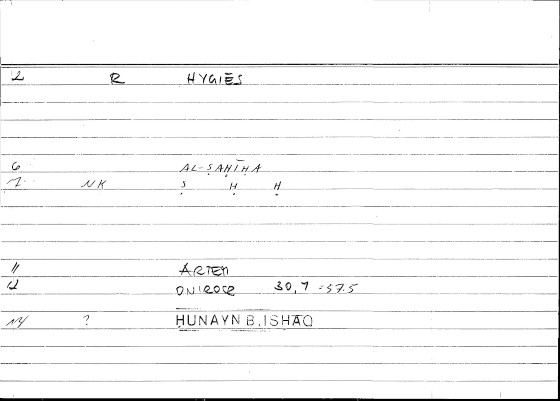 2 R HYGIĒS
6 AL-ṢAḤĪḤA
7 NK Ṣ Ḥ Ḥ
11 ARTEM
12 ONIROCR 30,7 = 57.5
14 ? ḤUNAYN B. ISḤĀQ